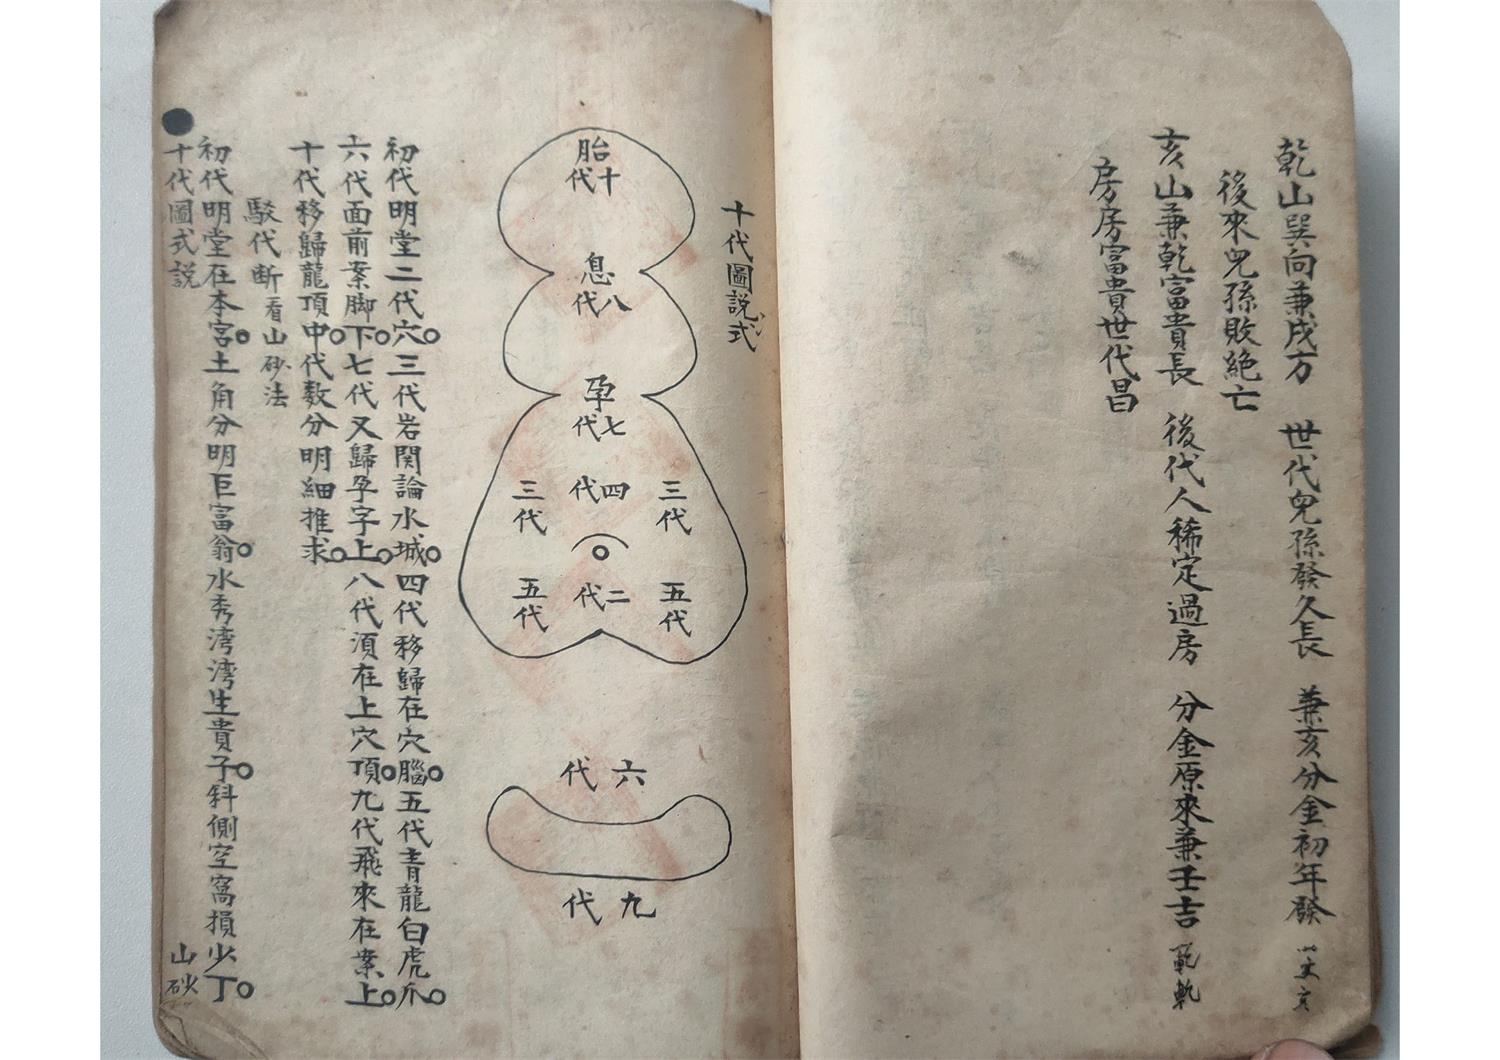 乾山巽向兼戌方　世代兒孫發久長　兼亥分金初年發
後來兒孫敗絕亡
亥山兼乾富貴長　後代人稀定過房　分金原來兼壬吉
房房富貴世代昌
十代圖説式
胎
十代
息
八代
孕
七代
三代
四代
三代
五代
二代
五代
六代
九代
初代明堂二代穴。三代岩関論水城。四代移歸在穴腦。五代青龍白虎爪。
六代面前案脚下。七代又歸孕字上。八代湏在上穴頂。九代飛來在案上。
十代移歸龍頂中。代数分明細推求。
駁代断看山砂法
初代明堂在本宮。土角分明巨富翁。水秀湾湾生貴子。斜側空窩損少丁。
十代圖式説
山砂